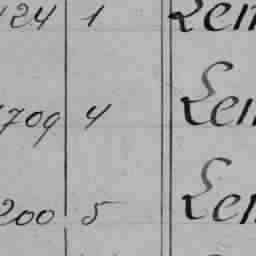 124 1 Lem
1709 4 Lem
200 5 Lem